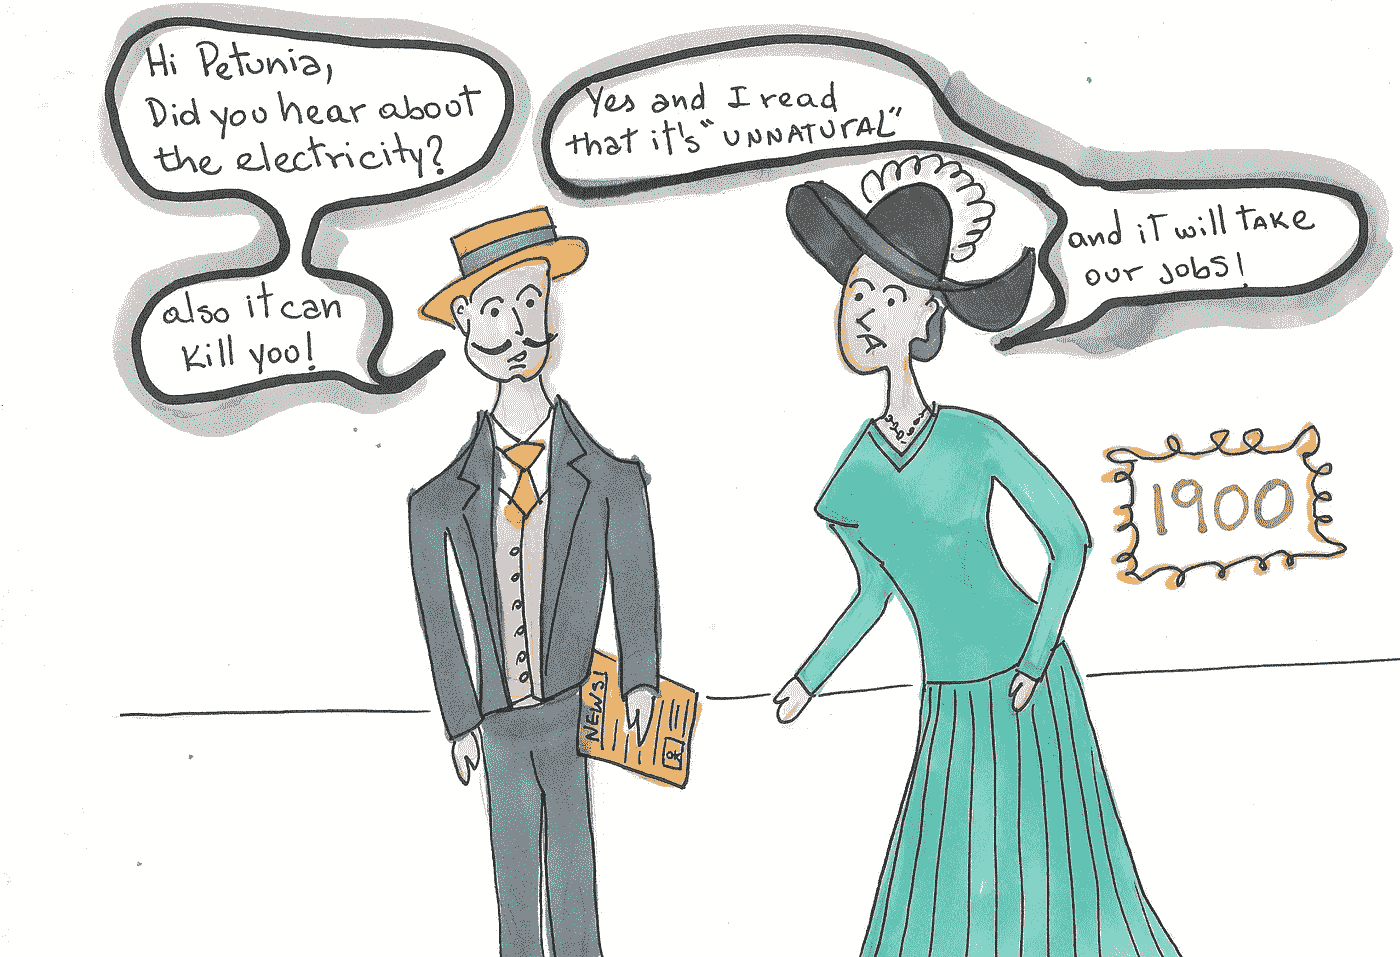 Hi Petunia,
Did you hear about
the electricity?
also it can
kill yoo!
Yes and I read
that it's "UNNATURAL"
and it will take
our jobs!
NEWS!
1900